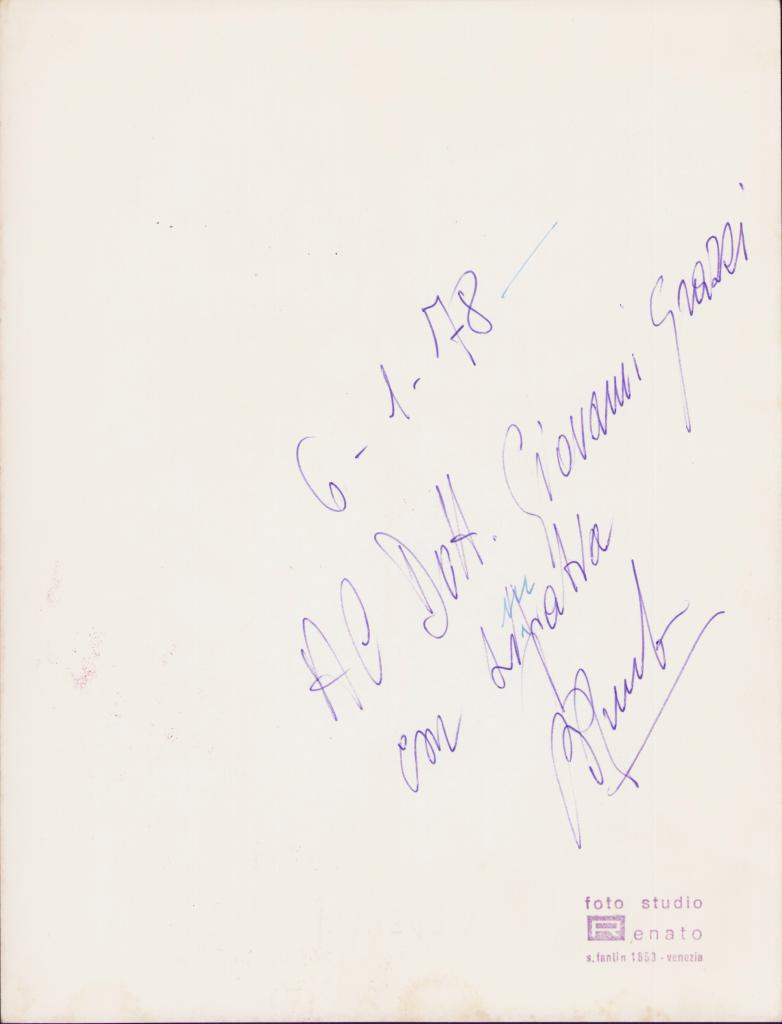 6-1-78
Al Dott. Giovanni Grazzi
con simpatia
foto studio
Renato
s. fantin 1853 - venezia